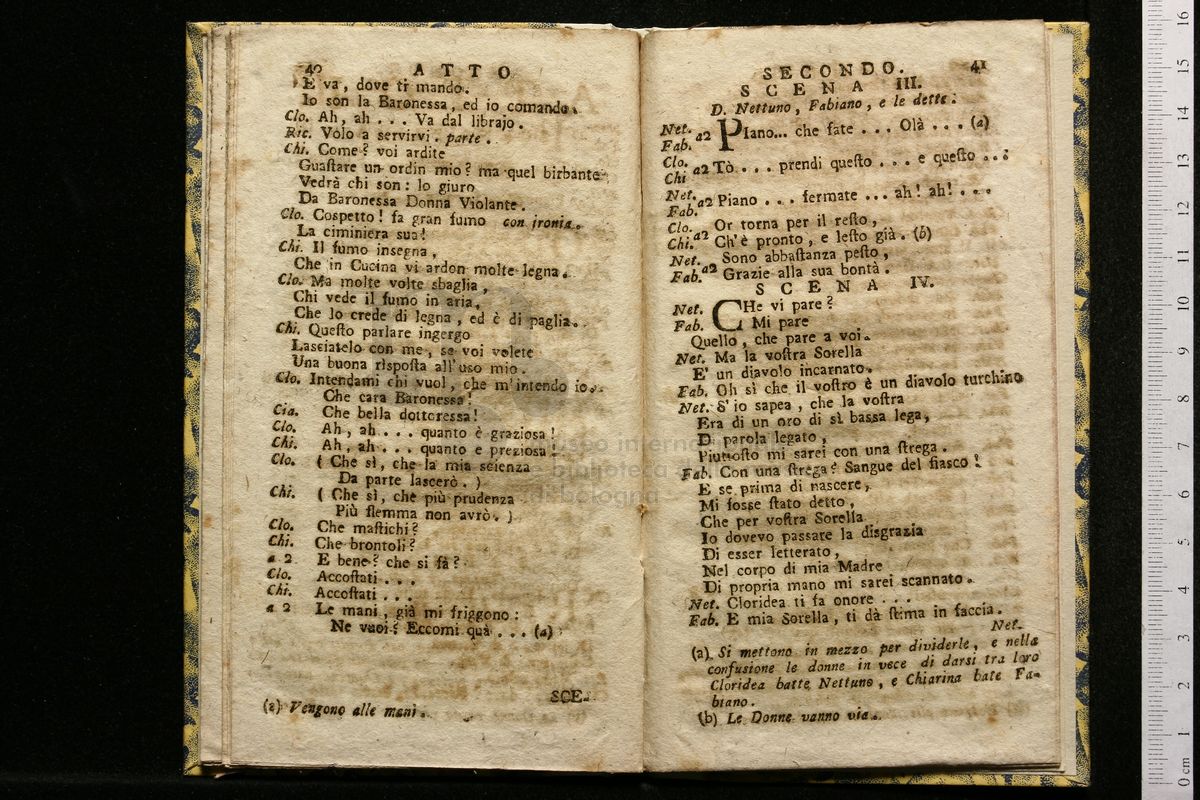 40 ATTO
E va, dove ti mando.
Io son la Baronessa, ed io comando.
Clo. Ah, ah . . . Va dal librajo.
Ric. Volo a servirvi. parte.
Chi. Come? voi ardite
Guaſtare un ordin mio? ma quel birbante
Vedrà chi son: lo giuro
Da Baronessa Donna Violante.
Clo. Cospetto! fa gran fumo con ironia.
La ciminiera sua!
Chi. Il fumo insegna,
Che in Cucina vi ardon molte legna.
Clo. Ma molte volte sbaglia,
Chi vede il fumo in aria,
Che lo crede di legna, ed è di paglia.
Chi. Queſto parlare ingergo
Lasciatelo con me, se voi volete
Una buona risposta all'uso mio.
Clo. Intendami chi vuol, che m'intendo io.
Che cara Baronessa!
Cia. Che bella dottoressa!
Clo. Ah, ah . . . quanto è graziosa!
Chi. Ah, ah . . . quanto e preziosa!
Clo. ( Che sì, che la mia scienza
Da parte lascerò. )
Chi. ( Che sì, che più prudenza
Più flemma non avrò. )
Clo. Che maſtichi?
Chi. Che brontoli?
a 2 E bene? che si fà?
Clo. Accoſtati . . .
Chi. Accoſtati . . .
a 2 Le mani, già mi friggono:
Ne vuoi? Eccomi quà . . . (a)
SCE.
(a) Vengono alle mani.
SECONDO. 41
SCENA III.
D. Nettuno, Fabiano, e le dette.
Net. Fab. a2 PIano... che fate . . . Olà . . . (a)
Clo. Chi a2 Tò . . . prendi queſto . . . e queſto . . .
Net. Fab. a2 Piano . . . fermate ... ah! ah! . . .
Clo. Or torna per il reſto,
Chi. a2 Ch'è pronto, e leſto già. (b)
Net. Sono abbaſtanza peſto,
Fab. a2 Grazie alla sua bontà.
SCENA IV.
Net. CHe vi pare?
Fab. Mi pare
Quello, che pare a voi.
Net. Ma la voſtra Sorella
E' un diavolo incarnato.
Fab. Oh sì che il voſtro è un diavolo turchino
Net. S' io sapea, che la voſtra
Era di un oro di sì bassa lega,
Di parola legato,
Piuttoſto mi sarei con una ſtrega.
Fab. Con una ſtrega? Sangue del fiasco!
E se prima di nascere,
Mi fosse ſtato detto,
Che per voſtra Sorella
Io dovevo passare la disgrazia
Di esser letterato,
Nel corpo di mia Madre
Di propria mano mi sarei scannato.
Net. Cloridea ti fa onore . . .
Fab. E mia Sorella, ti dà ſtima in faccia.
Net.
(a) Si mettono in mezzo per dividerle, e nella
confusione le donne in vece di darsi tra loro
Cloridea batte Nettuno, e Chiarina bate Fa-
biano.
(b) Le Donne vanno via.
museo internazionale
e biblioteca
di bologna
0 cm 1 2 3 4 5 6 7 8 9 10 11 12 13 14 15 16